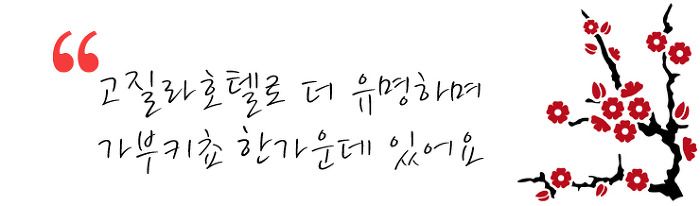 “
고질라호텔로 더 유명하며
가부키쵸 한가운데 있어요